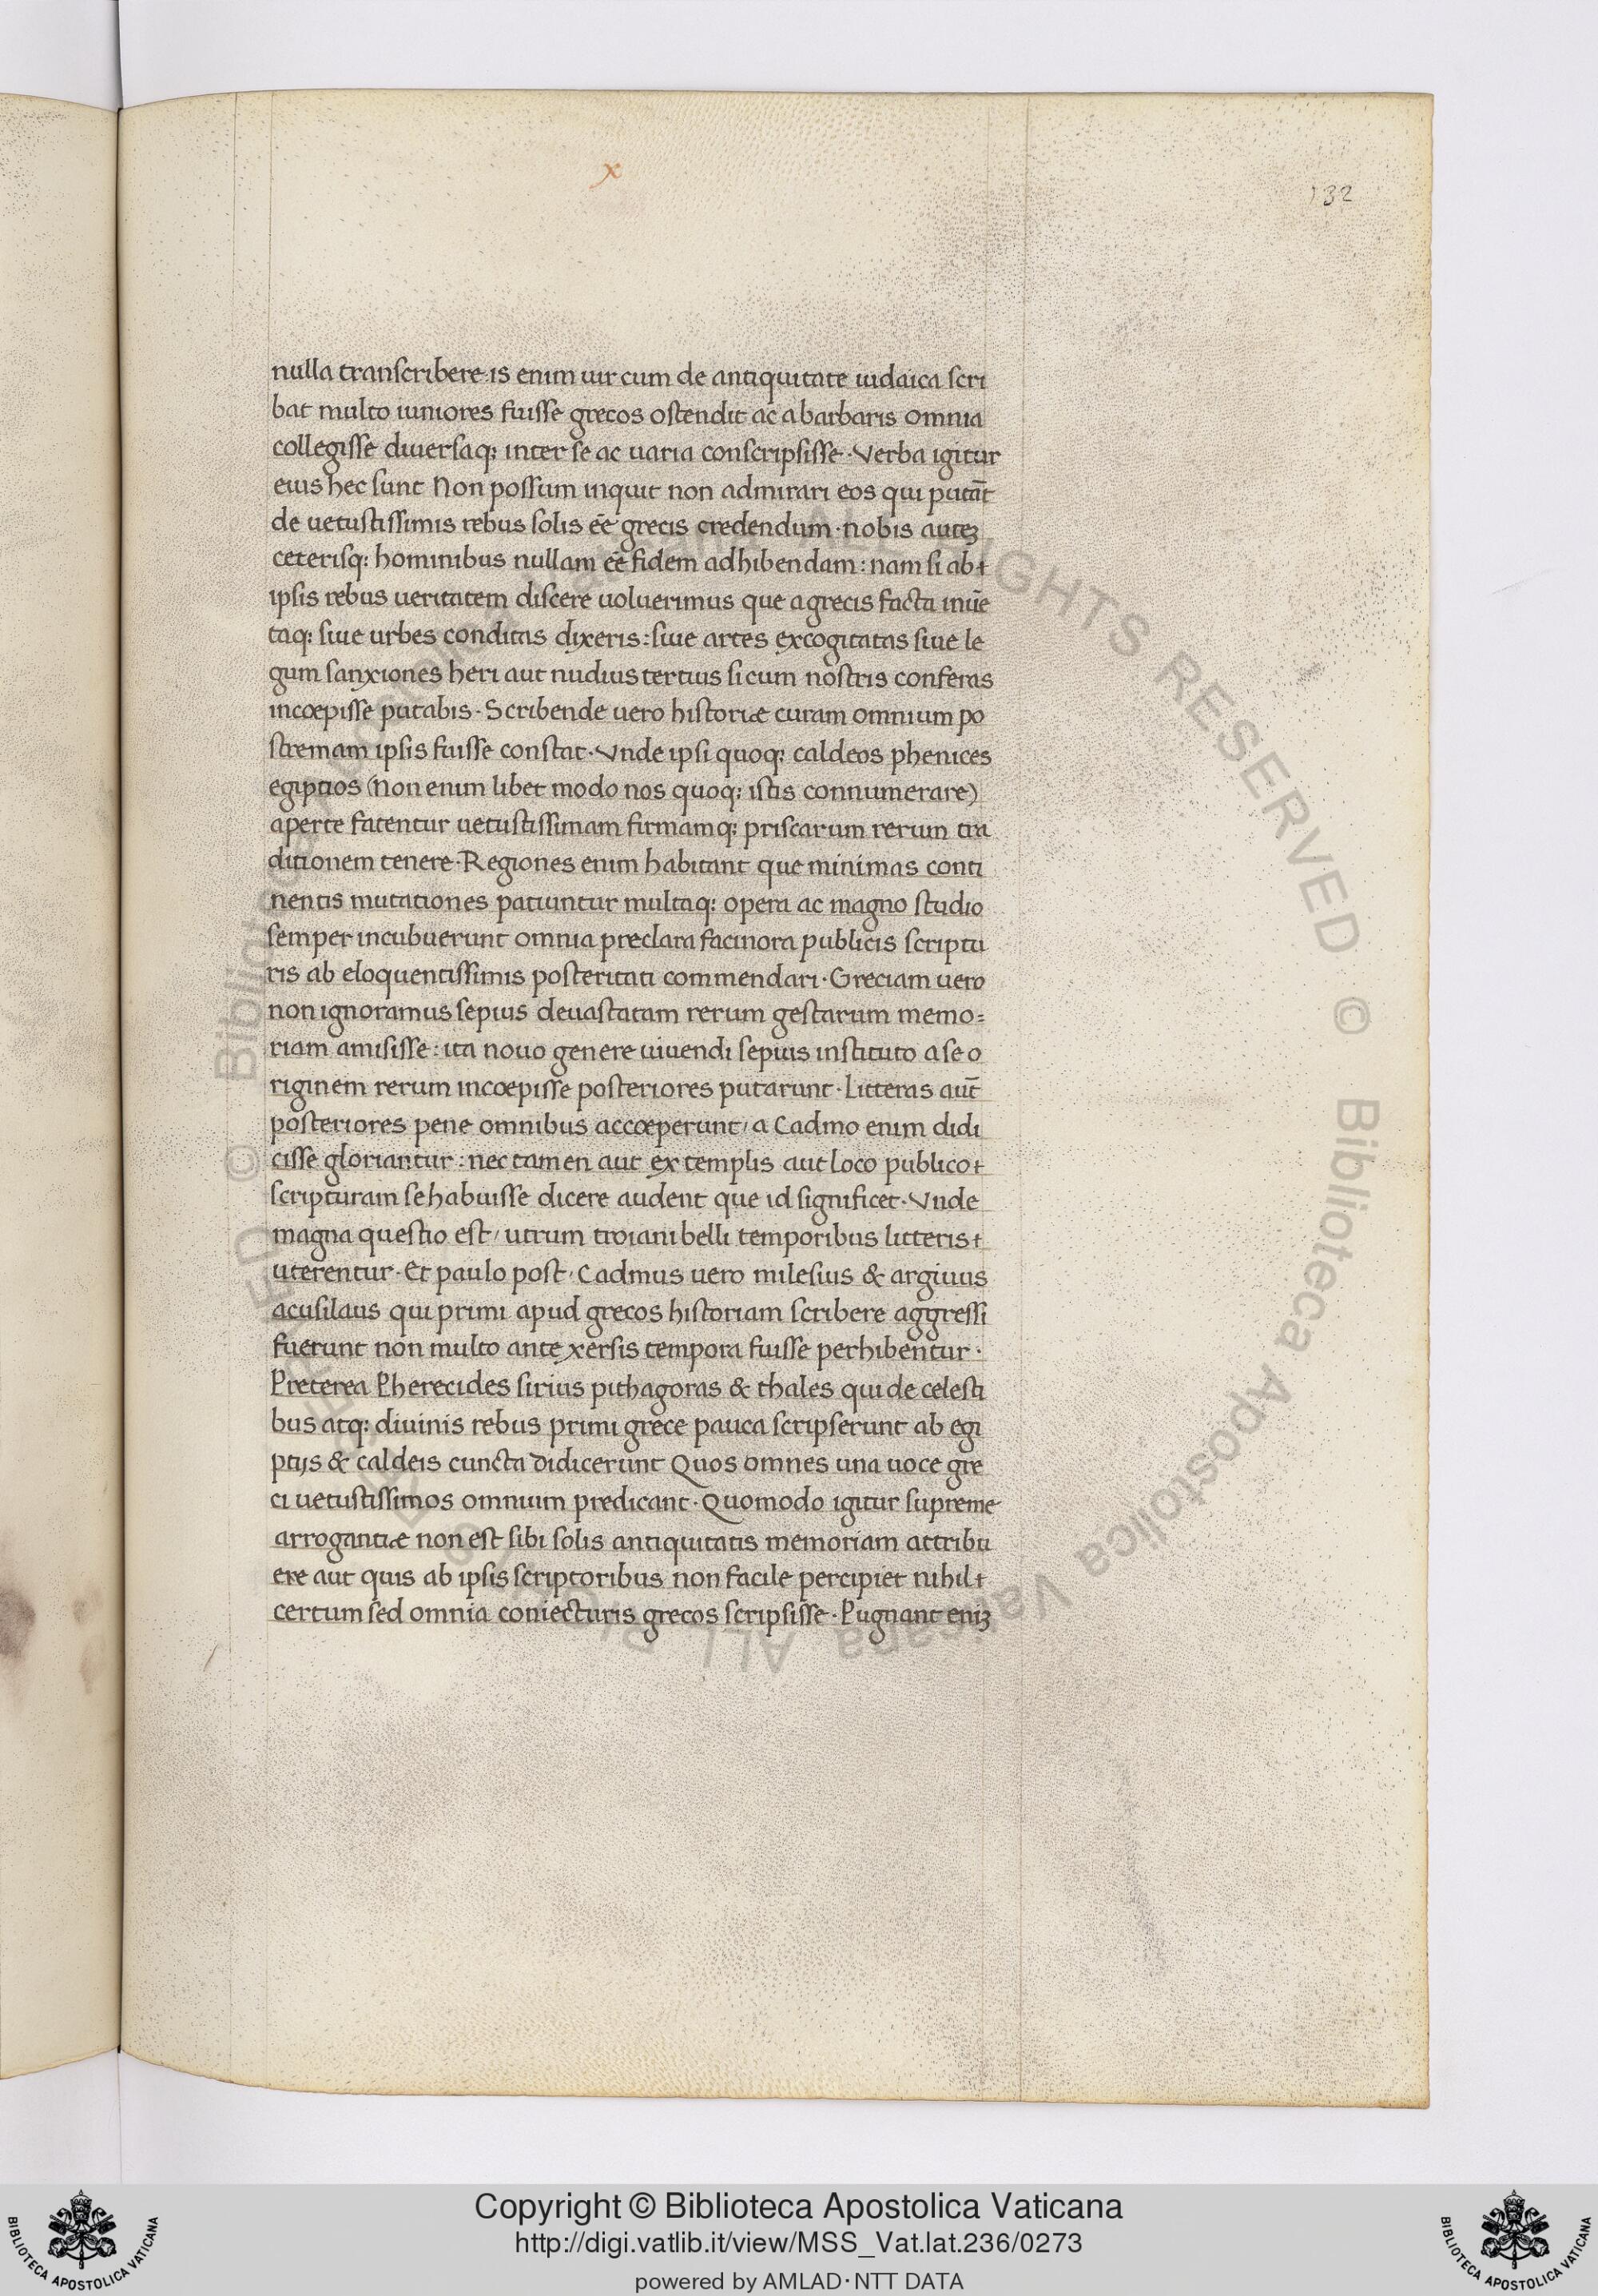 x
132
nulla transcribere: is enim uir cum de antiquitate iudaica scri
bat multo iuniores fuisse grecos ostendit ac a barbaris omnia
collegisse diuersaq; inter se ac uaria conscripsisse · Verba igitur
eius hec sunt Non possum inquit non admirari eos qui putāt
de uetustissimis rebus solis eē grecis credendum · nobis auteȝ
ceterisq; hominibus nullam eē fidem adhibendam: nam si ab
ipsis rebus ueritatem discere uoluerimus que a grecis facta inuē
taq; siue urbes conditas dixeris: siue artes excogitatas siue le
gum sanxiones heri aut nudius tertius si cum nostris conferas
incoepisse putabis · Scribende uero historiæ curam omnium po
stremam ipsis fuisse constat · Vnde ipsi quoq; caldeos phenices
egiptios (Non enim libet modo nos quoq; istis connumerare)
aperte fatentur uetustissimam firmamq; priscarum rerum tra
ditionem tenere · Regiones enim habitant que minimas conti
nentis mutationes patiuntur multaq; opera ac magno studio
semper incubuerunt omnia preclara facinora publicis scriptu
ris ab eloquentissimis posteritati commendari · Greciam uero
non ignoramus sepius deuastatam rerum gestarum memo=
riam amisisse: ita nouo genere uiuendi sepius instituto a se o
riginem rerum incoepisse posteriores putarunt · Litteras aut̄
posteriores pene omnibus accoeperunt / a Cadmo enim didi
cisse gloriantur: nec tamen aut ex templis aut loco publico
scripturam se habuisse dicere audent que id significet · Vnde
magna questio est / utrum troiani belli temporibus litteris
uterentur · Et paulo post · Cadmus uero milesius & argiuus
acusilaus qui primi apud grecos historiam scribere aggressi
fuerunt non multo ante xersis tempora fuisse perhibentur ·
Preterea Pherecides sirius pithagoras & thales qui de celesti
bus atq; diuinis rebus primi grece pauca scripserunt ab egi
ptijs & caldeis cuncta didicerunt Quos omnes una uoce gre
ci uetustissimos omnium predicant · Quomodo igitur supreme
arrogantiæ non est sibi solis antiquitatis memoriam attribu
ere aut quis ab ipsis scriptoribus non facile percipiet nihil
certum sed omnia coniecturis grecos scripsisse · Pugnant eniȝ
Copyright © Biblioteca Apostolica Vaticana
http://digi.vatlib.it/view/MSS_Vat.lat.236/0273
powered by AMLAD·NTT DATA
BIBLIOTECA APOSTOLICA VATICANA
BIBLIOTECA APOSTOLICA VATICANA